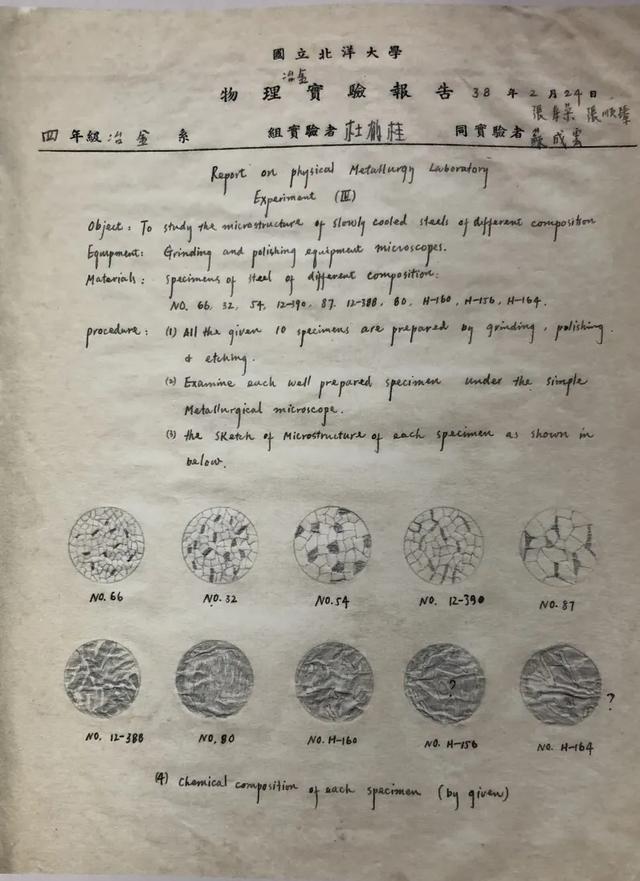 國立北洋大學
冶金
物理實驗報告 38年2月24日
張 張順
四年級冶金系 組實驗者杜桂 同實驗者蘇成雲
Report on physical Metallurgy Laboratory
Experiment (III)
Object: To study the microstructure of slowly cooled steels of different composition
Equipment: Grinding and polishing equipment microscopes.
Materials: Specimens of steel of different composition:
NO. 66, 32, 54, 12-390, 87, 12-388, 80, H-160, H-156, H-164.
procedure: (1) All the given 10 specimens are prepared by grinding, polishing
& etching.
(2) Examine each well prepared specimen under the simple
Metallurgical microscope.
(3) the Sketch of Microstructure of each specimen as shown in
below.
NO. 66 NO. 32 NO. 54 NO. 12-390 NO. 87
? ?
NO. 12-388 NO. 80 NO. H-160 NO. H-156 NO. H-164
(4) Chemical composition of each specimen (by given)